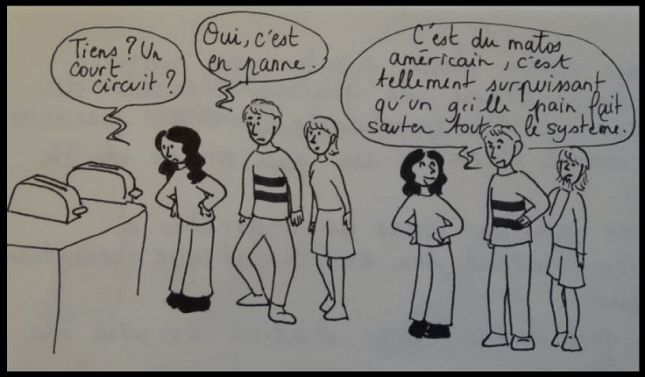 Tiens ? Un
court
circuit ?
Oui, c'est
en panne.
C'est du matos
américain, c'est
tellement surpuissant
qu'un grille pain fait
sauter tout le système.